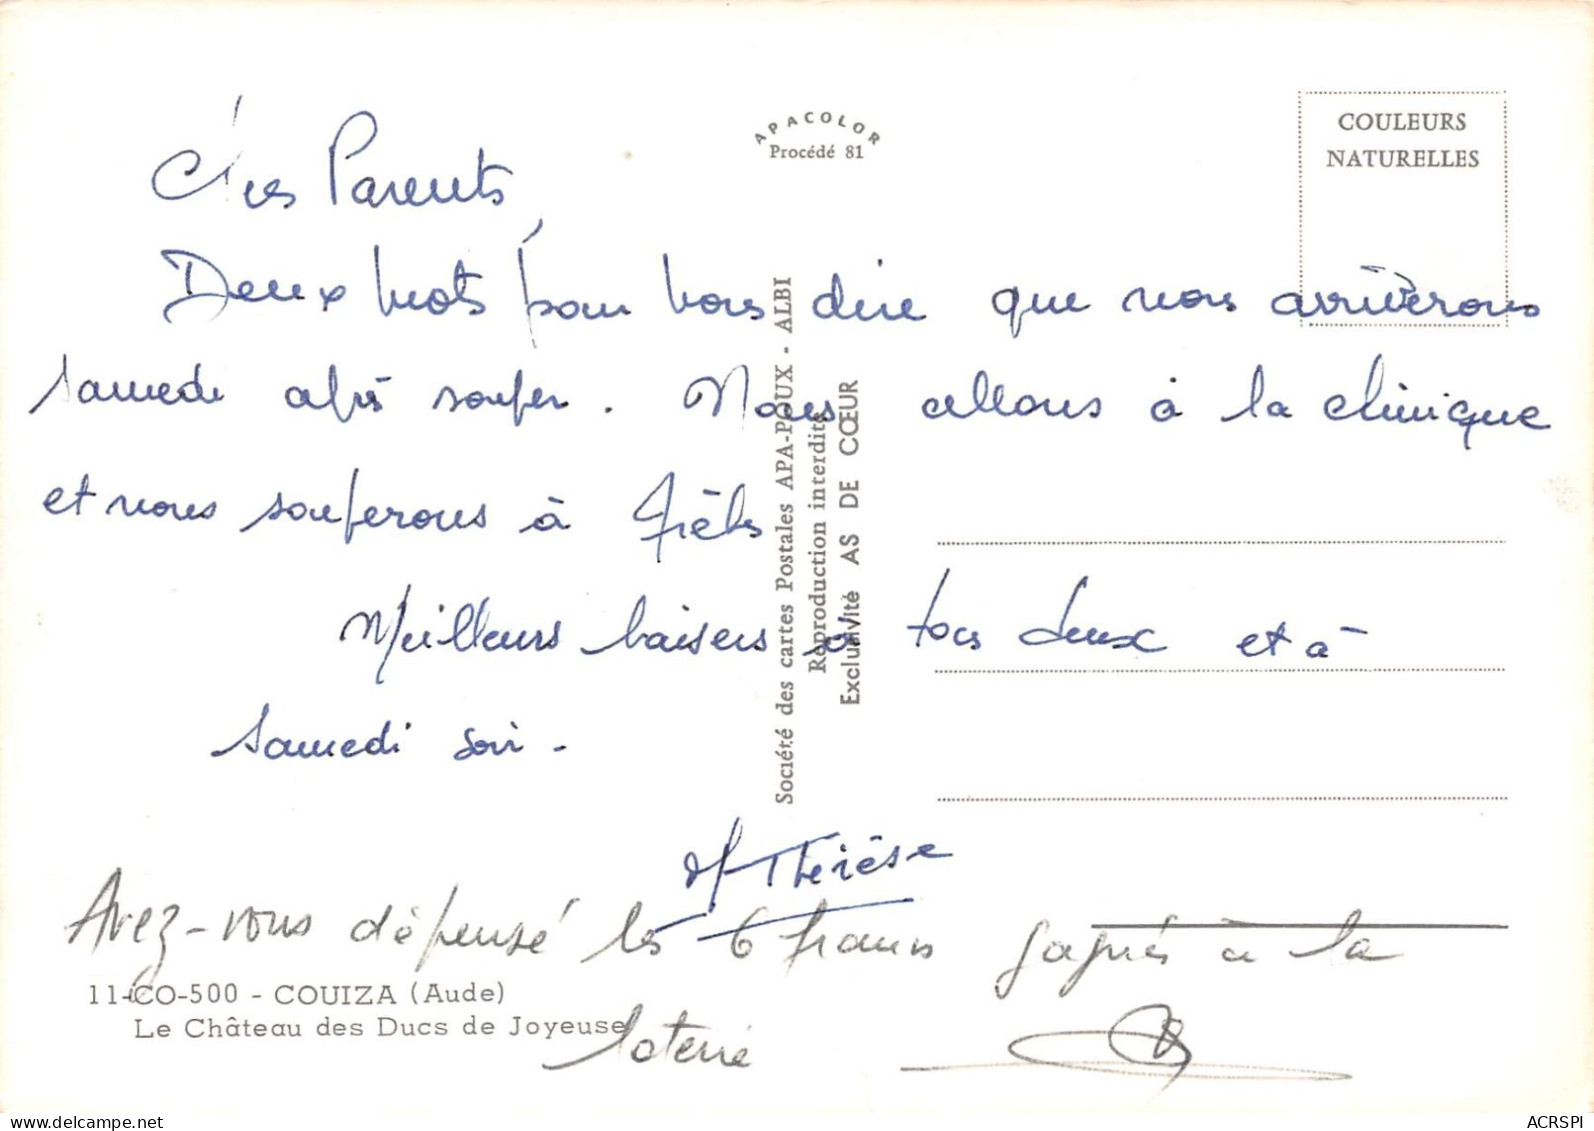 APACOLOR
Procédé 81
COULEURS
NATURELLES
Chers Parents
Deux mots pour vous dire que nous arrivèrons
samedi après souper. Nous allons à la clinique
et nous souperons à
Meilleurs baisers à tous deux et à
samedi soir -
M Thérèse
Avez-vous dépensé les 6 francs gagnés à la
loterie
Société des cartes Postales APA-POUX - ALBI
Reproduction interdite
Exclusivité AS DE CŒUR
11-CO-500 - COUIZA (Aude)
Le Château des Ducs de Joyeuse
delcampe.net
ACRSPI